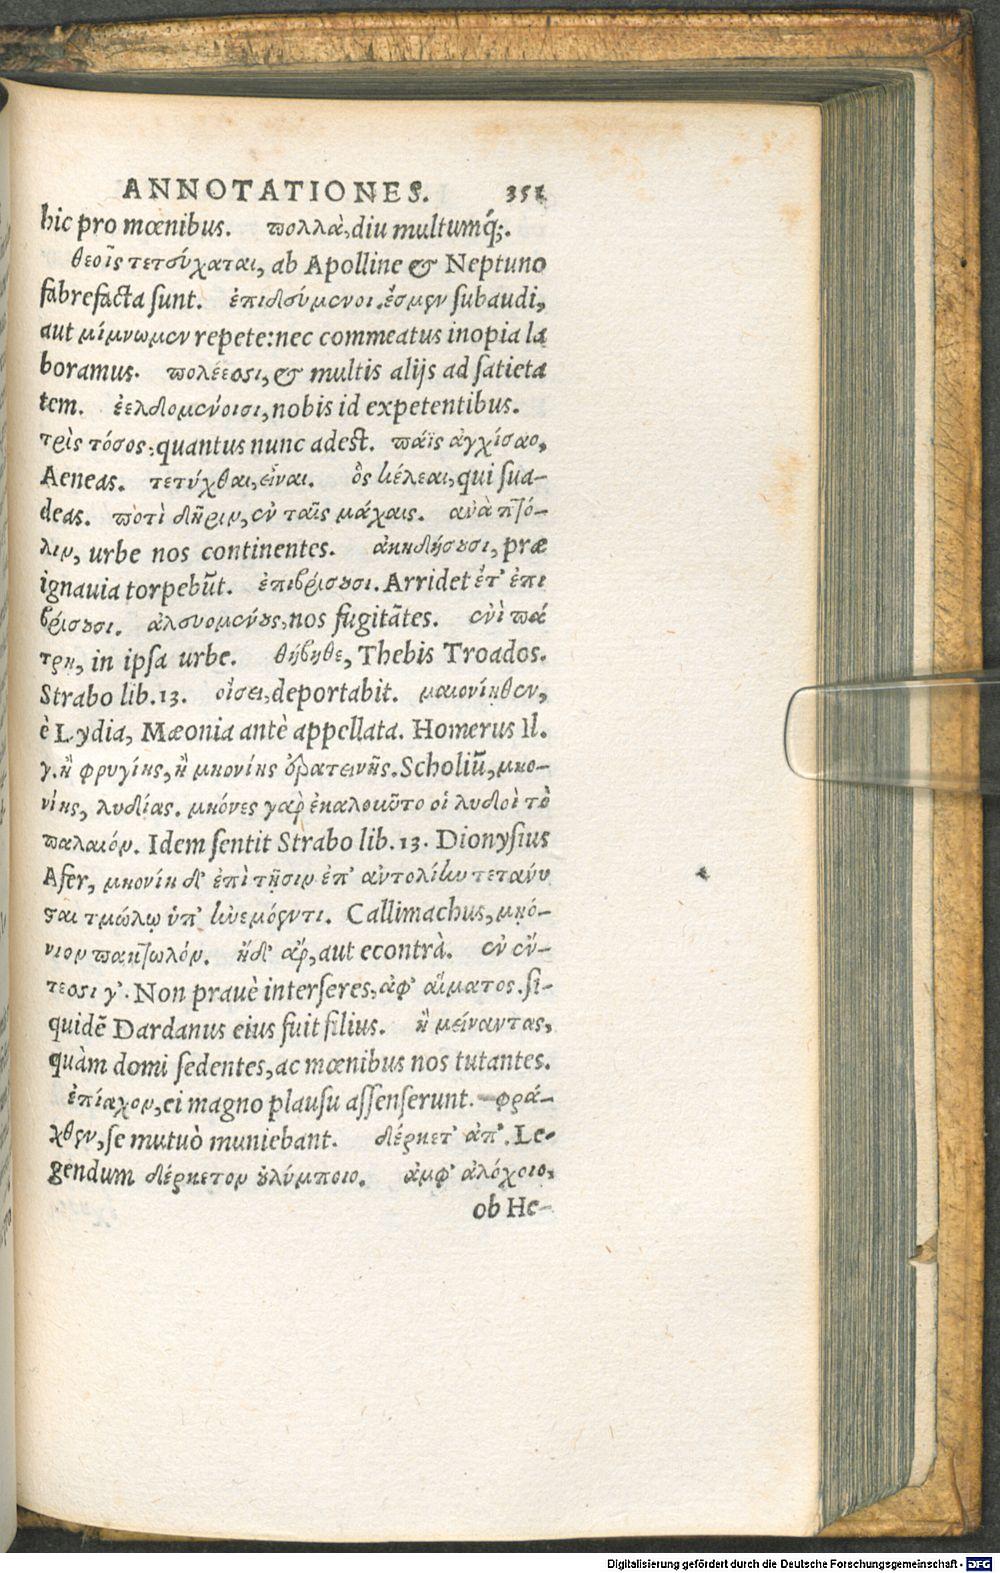 ANNOTATIONES. 351
hic pro mœnibus. πολλὰ, diu multumq́;.
θεοῖς τετεύχαται, ab Apolline & Neptuno
fabrefacta sunt. ἐπιδευόμενοι. ἐσμὲν subaudi,
aut μίμνωμεν repete: nec commeatus inopia la
boramus. πολέεσσι, & multis alijs ad satieta
tem. ἐελδομένοισι, nobis id expetentibus.
τρὶς τόσος: quantus nunc adest. πάϊς ἀγχίσαο,
Aeneas. τετύχθαι, εἶναι. ὃς κέλεαι, qui sua-
deas. ποτὶ δῆριν, ἐν ταῖς μάχαις. ἀνὰ πτό-
λιν, urbe nos continentes. ἀκηδήσουσι, præ
ignauia torpebũt. ἐπιβρίσουσι. Arridet ἔτ' ἐπι
βρίσουσι. ἀλευομένους, nos fugitãtes. ἐνὶ πά
τρῃ, in ipsa urbe. θήβηθε, Thebis Troados.
Strabo lib. 13. οἴσει, deportabit. μαιονίηθεν,
è Lydia, Mæonia antè appellata. Homerus Il.
γ. ἢ φρυγίης, ἢ μηονίης ἐρατεινῆς. Scholiũ, μηο-
νίης, λυδίας. μηόνες γὰρ ἐκαλοῦντο οἱ λυδοὶ τὸ
παλαιόν. Idem sentit Strabo lib. 13. Dionysius
Afer, μηονίη δ' ἐπὶ τῇσιν ἐπ' ἀντολίην τετάνυ
σαι τμώλῳ ὑπ' ἠνεμόεντι. Callimachus, μῃό-
νιον πακτωλόν. ἠδ' ἄρ, aut econtrà. ἐν ἔν-
τεσι γ'. Non prauè interseres, ἀφ' αἵματος. si-
quidẽ Dardanus eius fuit filius. ἢ μείναντας,
quàm domi sedentes, ac mœnibus nos tutantes.
ἐπίαχον, ei magno plausu assenserunt. φρά-
χθεν, se mutuò muniebant. δέρκετ' ἀπ'. Le-
gendum δέρκετον οὐλύμποιο. ἀμφ' ἀλόχοιο,
ob He-
Digitalisierung gefördert durch die Deutsche Forschungsgemeinschaft - DFG